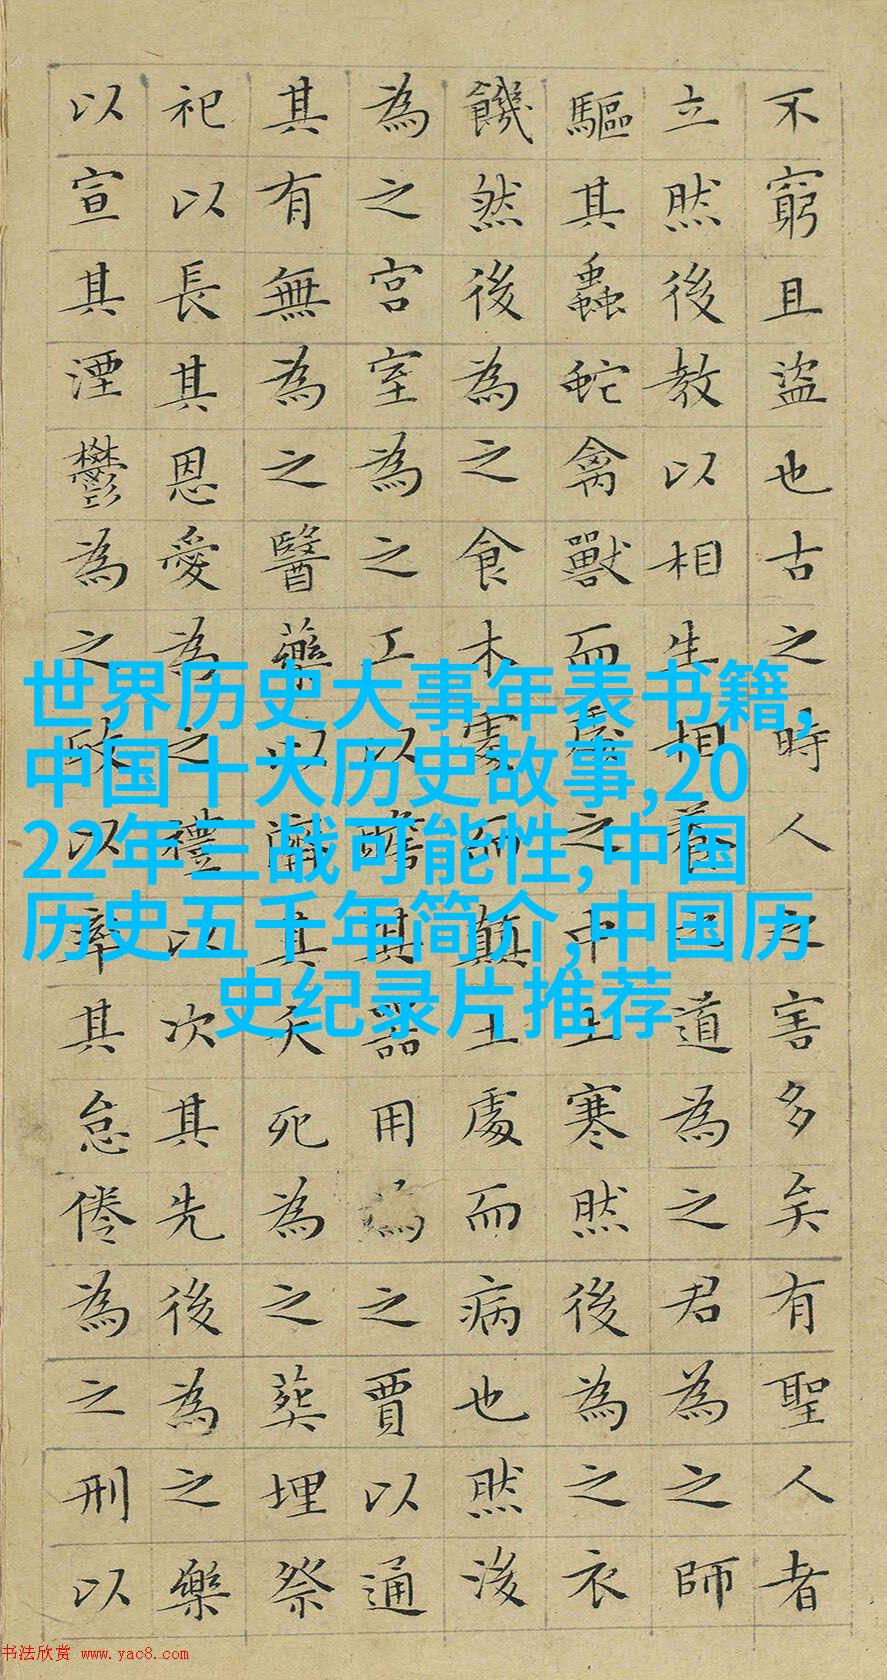 不窮且盜也古之時人之害多矣有聖人者
立然後教以相生相養之道為之君為之師
驅其蟲蛇禽獸而處之中土寒然後為之衣
饑然後為之食木處而顛土處而病也然後
為之宮室為之工以贍其器用為之賈以通
其有無為之醫藥以濟其夭死為之葬埋祭
祀以長其恩愛為之禮以次其先後為之樂
以宣其湮鬱為之政以率其怠倦為之刑以
世界历史大事年表书籍,
中国十大历史故事,20
22年三战可能性,中国
历史五千年简介,中国历
史纪录片推荐
书法欣赏 www.yac8.com